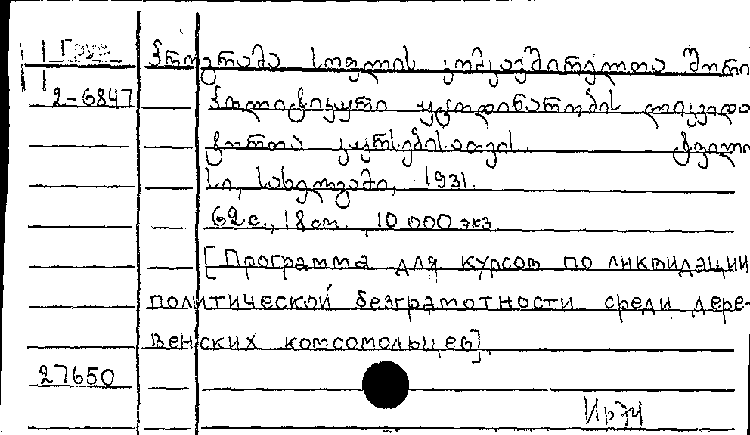 Груз
პროგრამა სოფლის კომკავშირელთა შორი
2-6847 პოლიტიკური უცოდინარობის ლიკვიდა
ტორთა კურსებისათვის. ტფილი
სი, სახელგამი, 1931.
62 с., 18 см. 10 000 экз
[Программа для курсов по ликвидации
политической безграмотности среди дере-
венских комсомольцев].
27650